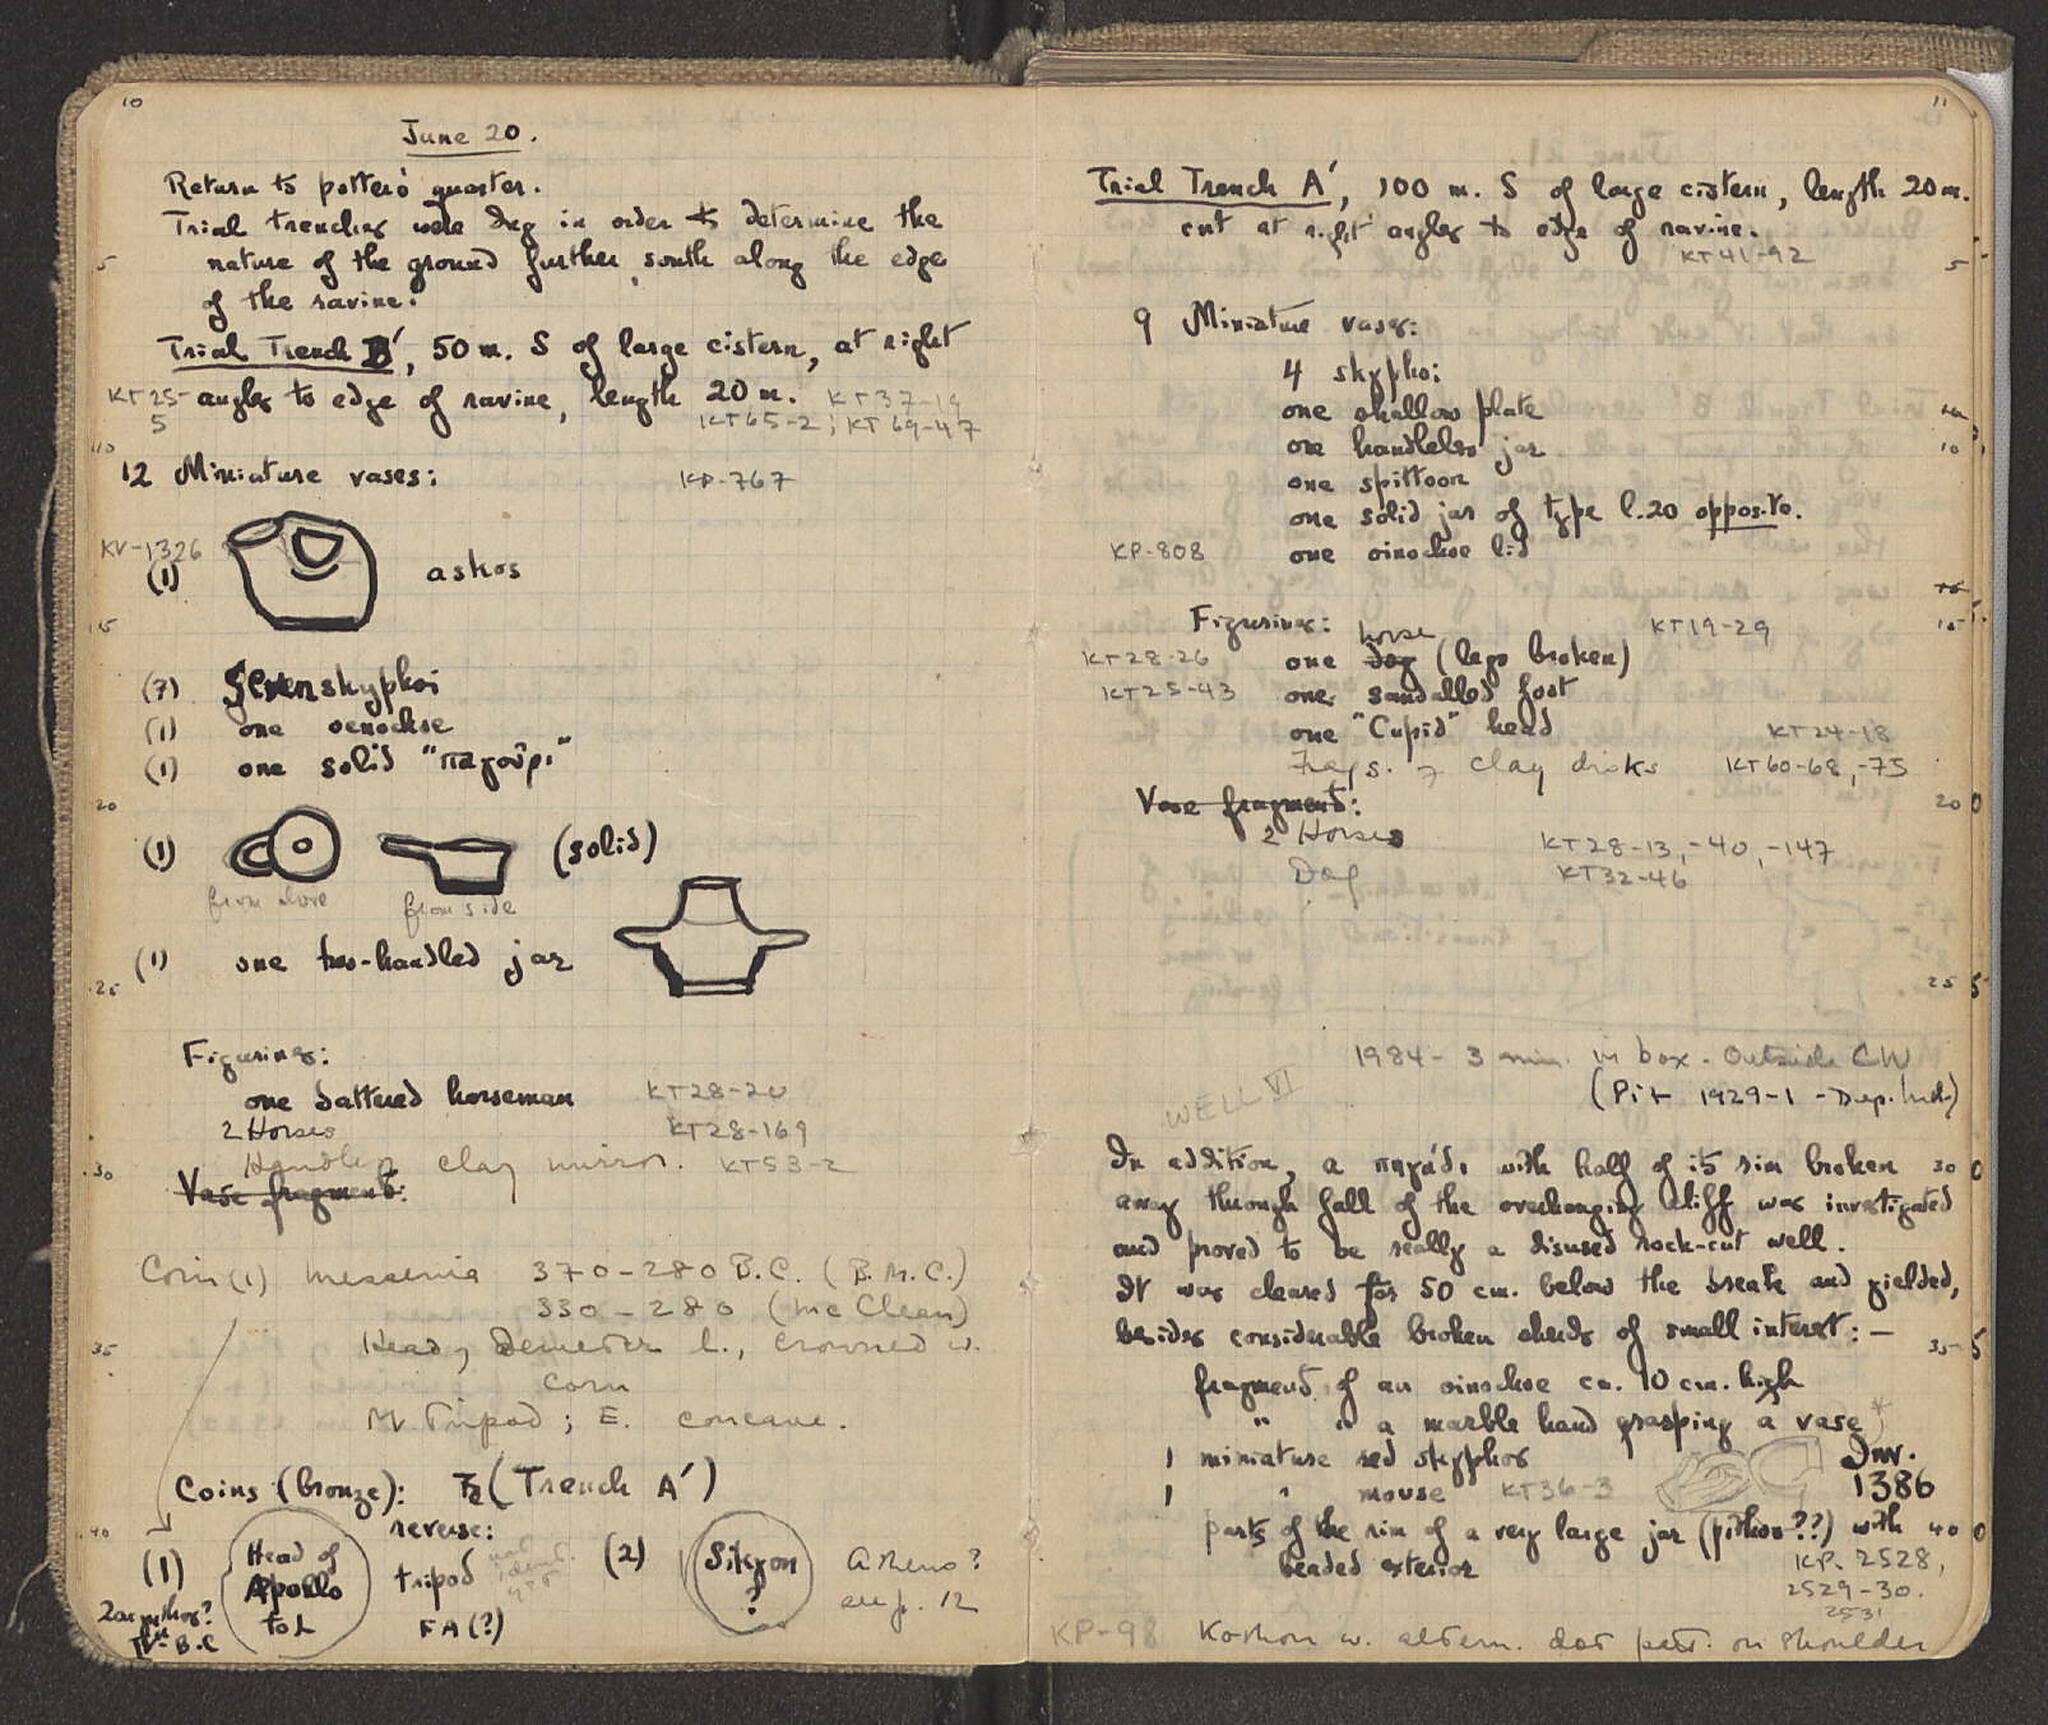 10
June 20.
Return to potters' quarter.
Trial trenches were dug in order to determine the
5
nature of the ground further south along the edge
of the ravine.
Trial Trench B', 50 m. S of large cistern, at right
KT25- angles to edge of ravine, length 20 m. KT37-19
5
KT65-2; KT69-47
10
12 Miniature vases: KP-767
KV-1326
(1) askos
15
(7) Seven skyphoi
(1) one oenochoe
(1) one solid "παγούρι"
20
(1) (solid)
from above from side
(1) one two-handled jar
25
Figurines:
one battered horseman KT28-20
2 Horses KT28-169
Handle of clay mirror. KT53-2
30
Vase fragments:
Coin (1) Messenia 370-280 B.C. (B.M.C.)
330-280 (McClean)
35
Head of Demeter l., crowned w.
corn
Tripod; E. concave.
Coins (bronze): (Trench A')
40
(1) Head of Apollo to L
reverse:
tripod not ident. yet
FA(?)
Zacynthos?
IVth B.C
(2) Sikyon ?
Athens?
cup. 12
11
Trial Trench A', 100 m. S of large cistern, length 20 m.
cut at right angles to edge of ravine.
KT41-92
5
9 Miniature vases:
4 skyphoi
one shallow plate
one handleless jar
10
one spittoon
one solid jar of type l.20 opposite.
KP-808 one oinochoe lid
Figurines: KT19-29
15
horse
KT28-26 one dog (legs broken)
KT25-43 one sandalled foot
one "Cupid" head KT24-18
Frags. of clay disks KT60-68, -75
Vase fragments:
20
2 Horses KT28-13, -40, -147
Dog KT32-46
25
1984 - 3 min. in box - Outside CW
WELL VI
(Pit 1929-1 - Dep. Ind.)
In addition, a πηγάδι with half of its rim broken
30
away through fall of the overhanging cliff was investigated
and proved to be really a disused rock-cut well.
It was cleared for 50 cm. below the break and yielded,
besides considerable broken sherds of small interest: —
35
fragment of an oinochoe ca. 10 cm. high
" " a marble hand grasping a vase
1 miniature red skyphos
Inv.
1386
1 " mouse KT36-3
parts of the rim of a very large jar (pithos??) with
40
beaded exterior
KP. 2528,
2529-30.
2531
KP-98 Kothon w. altern. dot patt. on shoulder